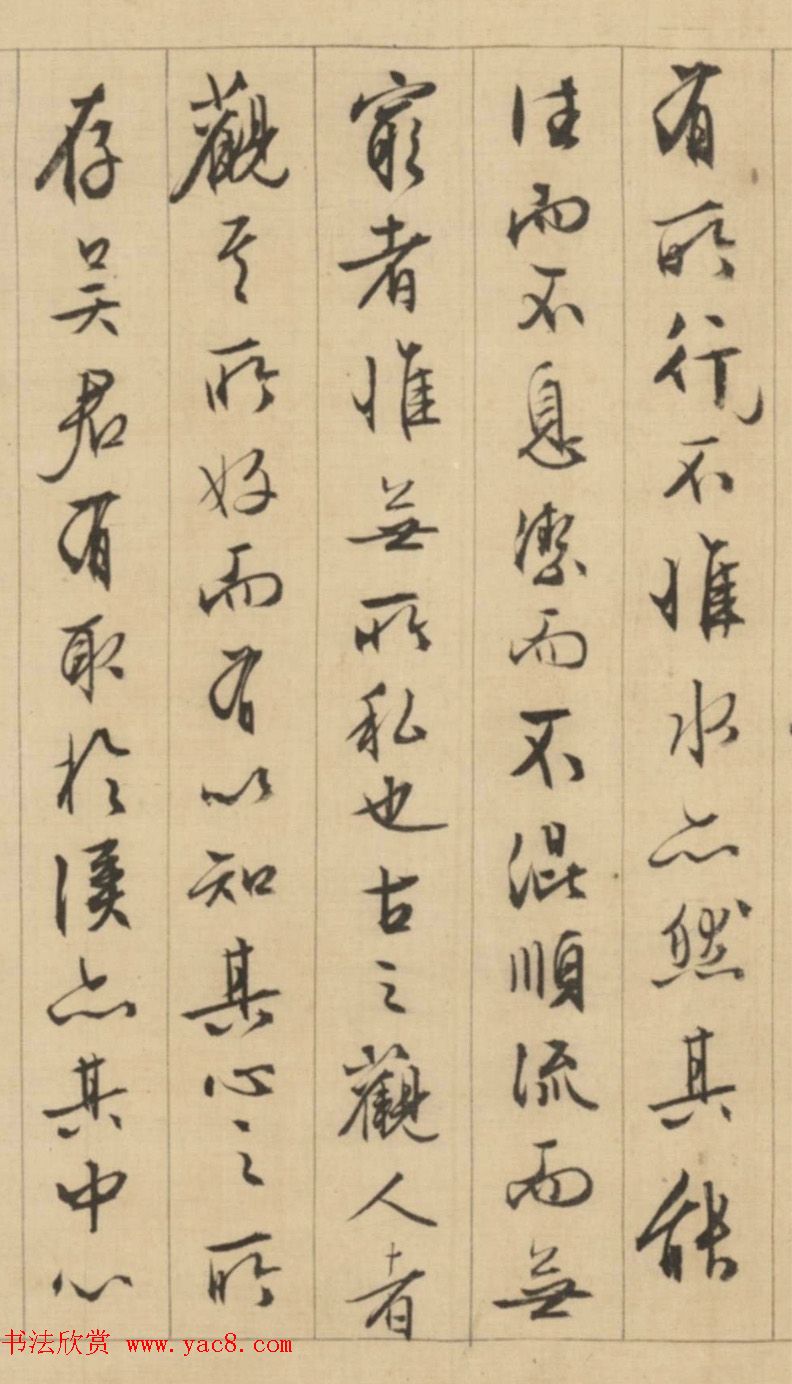 有所行不惟水亦然其能
往而不息潔而不混順流而無
窮者惟無所私也古之觀人者
觀其所好而有以知其心之所
存吴君有取於漢亦其中心
书法欣赏 www.yac8.com